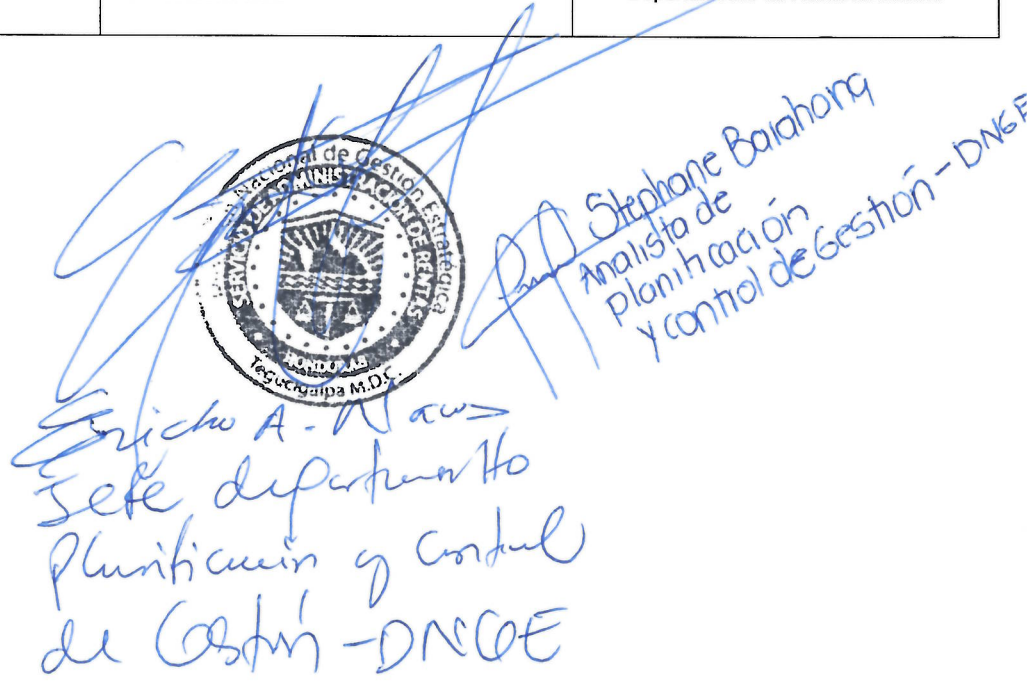 Nacional de Gestión Estratégica
SERVICIO DE ADMINISTRACION DE RENTAS
Tegucigalpa M.D.C.
Stephane Barahona
Analista de
planificación
y control de Gestión - DNGE
A.
Jefe departamento
Planificación y Control
de Gestión - DNGE